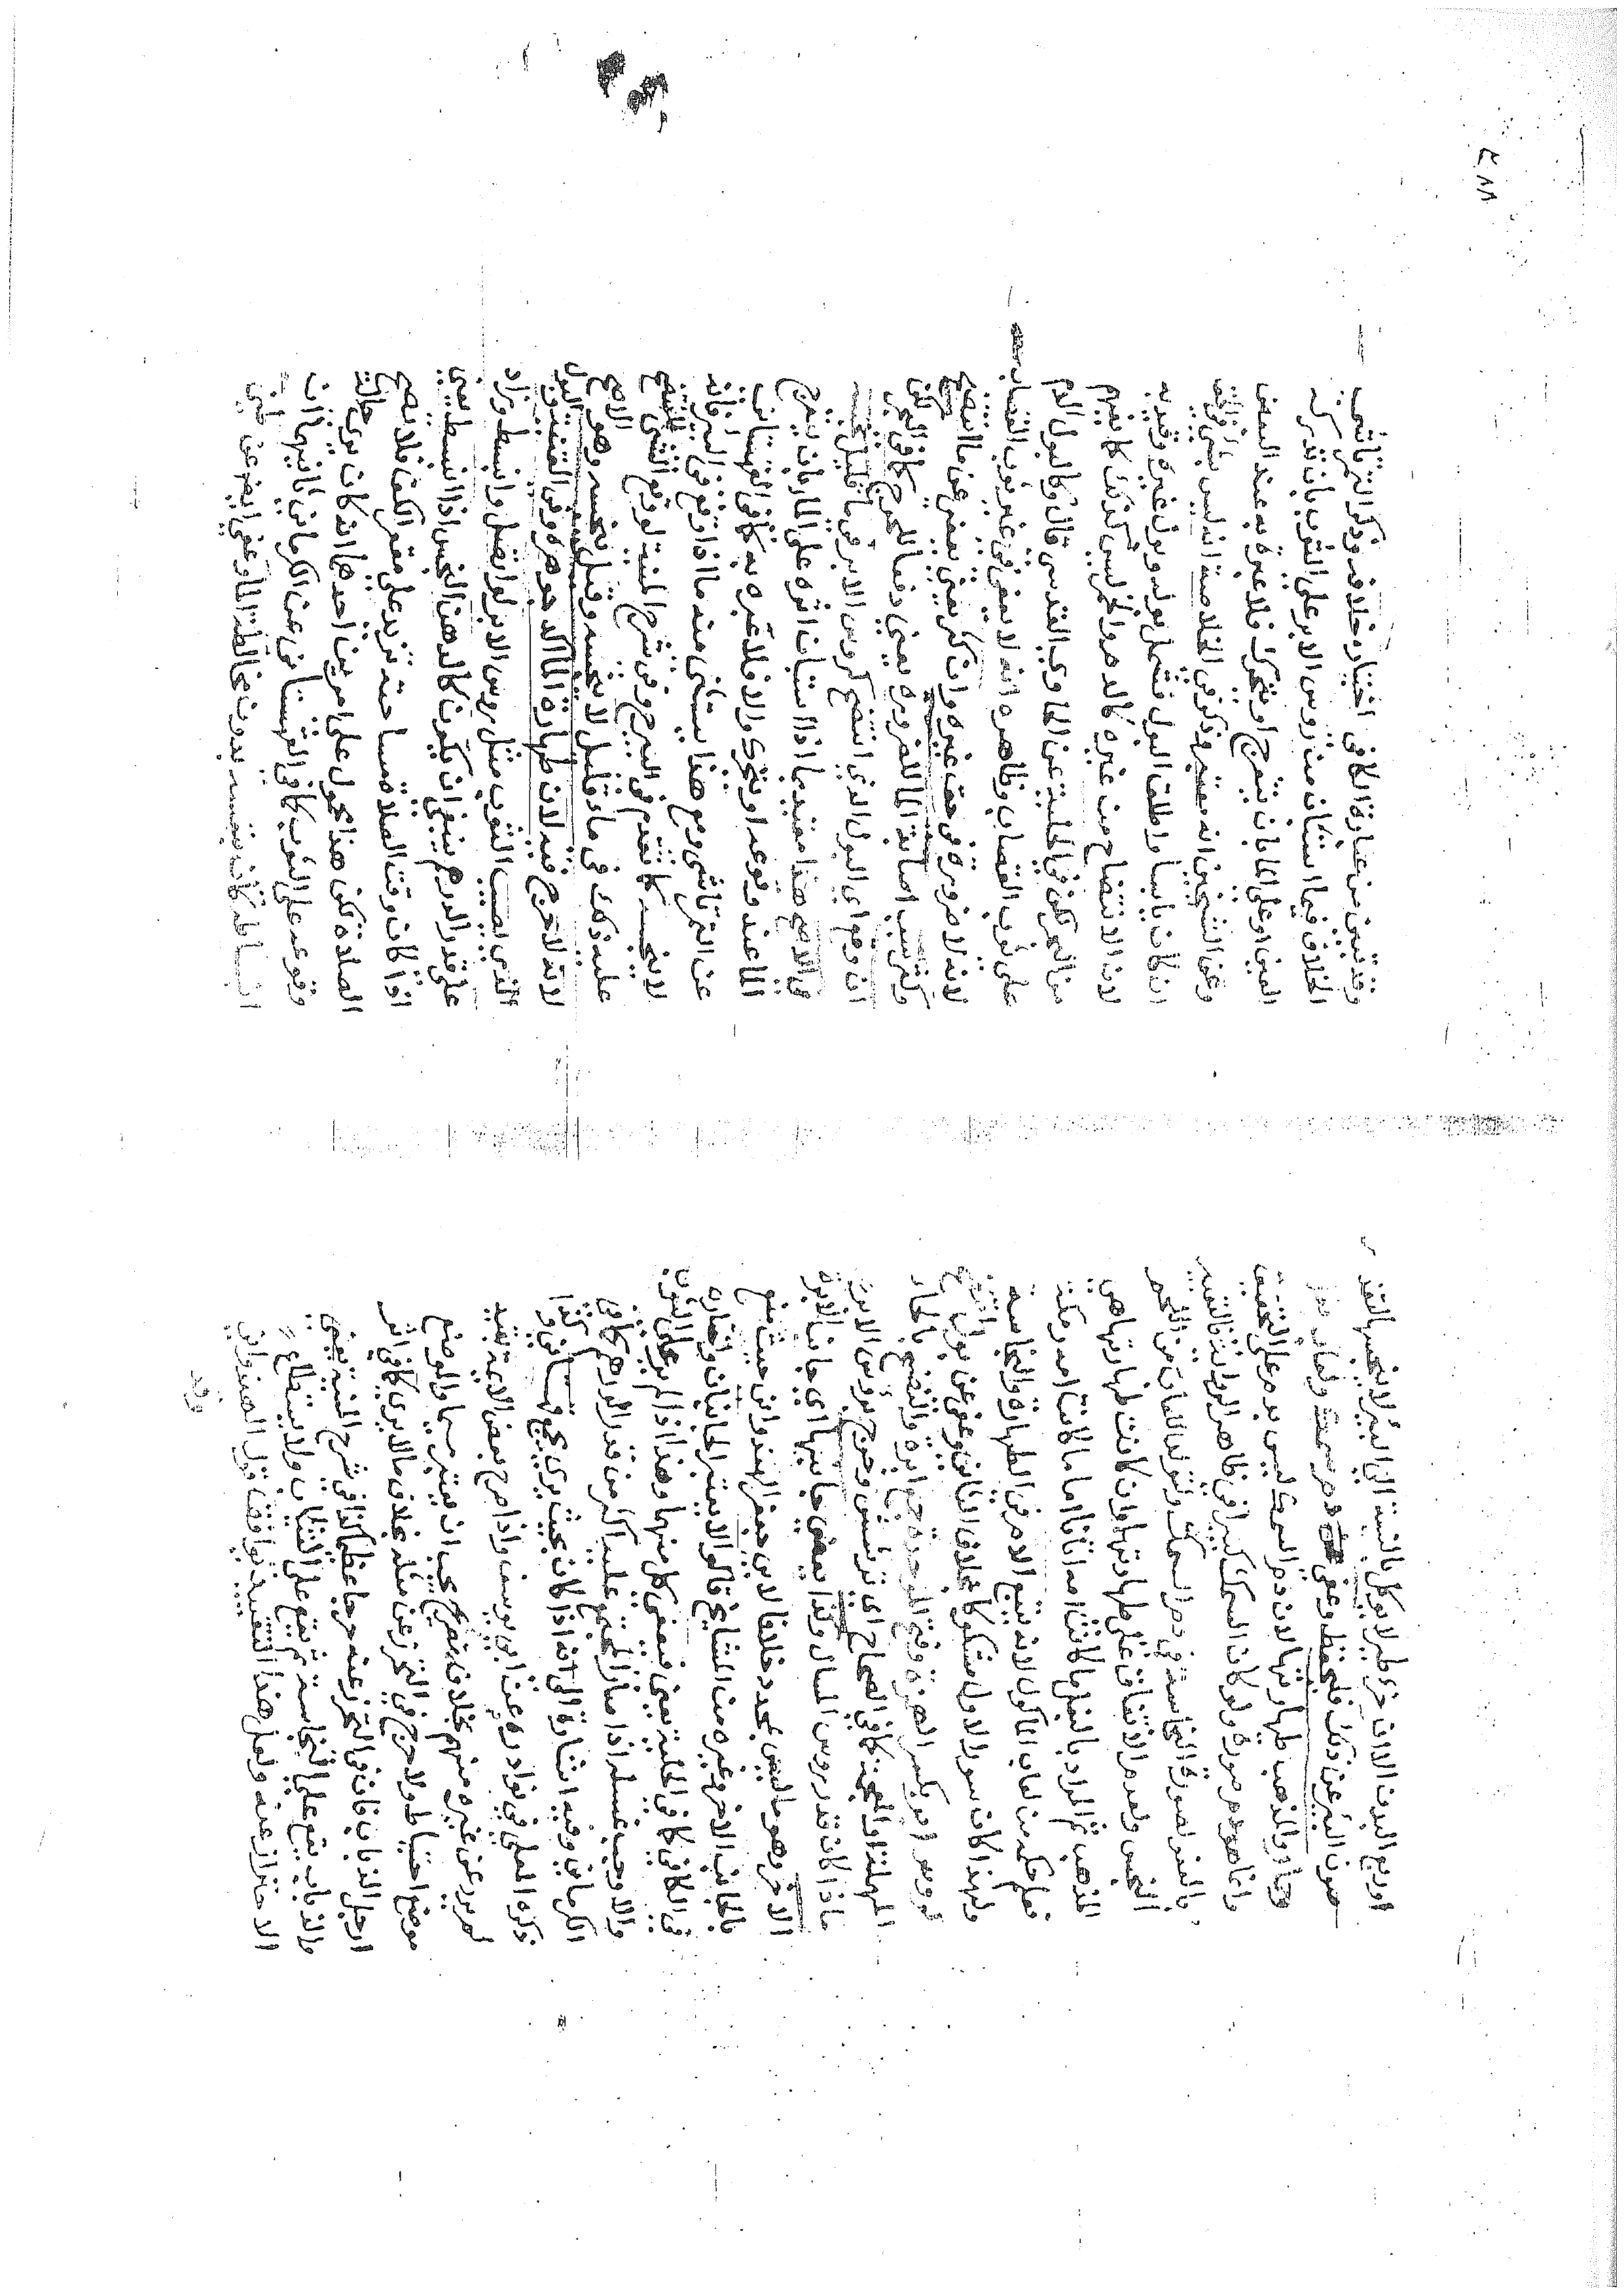 اوربع البدن الاذن خرء طير لا يوكل بالنسبة الى البير لا ينجسها لتعذر
صون البئر عن ذلك فليحفظ وعفى دم سمك ولعاب بغل
وحمار والمذهب طهارتها لان دم السمك ليس بدم على التحقيق
وانما هو دم صورة ولو كان السمك كبيرا في ظاهر الرواية فالتعبير
بالعفو لصورة النجاسة في دم السمك ولتولد اللعاب من اللحم
النجس ولعدم الاتفاق على طهارتها وان كانت طهارتها هي
المذهب ثم المراد بالبغل ما كانت امه اتانا اما ما كانت امه رمكة
فعلم حكمه من لعاب الماكول لانه يتبع الام في الطهارة والنجاسة
ولهذا كان سور الاول مشكوكا بخلاف الثاني وعفى عن بول انتضح
كروس ابر بكسر الهمزة وفتح الموحدة جمع ابرة والنضح بالحاء
المهملة او المعجمة كما في الصحاح اي ترشش وخرج بروس الابرة
ما اذا كان قدر روس المسال وكذا يعفى جانبها اي جانب الابرة
الاخر وهو ما ليس بمحدد خلافا لابي جعفر الهندواني حيث منع
بالجانب الاخر وغيره من المشايخ قالوا لا يعتبر الجانبان واختاره
في الكافي كما في الحلية يعني فيعفى كل منهما وهذا اذا لم ير على الثوب
والا وجب غسله اذا صار بالجمع عليه اكثر من قدر الدرهم كما في
الكرماني وفيه اشارة الى انه اذا كان بحيث يرى يجمع قهستاني وكذا
ذكره المعلى في نوادره عن ابي يوسف واذا صرح بعض الائمة بقيد
لم يرو عن غيره منهم بخلاف تصريح يجب ان يعتبر سيما والموضع
موضع احتياط ولا حرج في التحرز عن مثله بخلاف ما لا يرى كما في اثر
ارجل الذباب فان في التحرز عنه حرجا عظيما كذا في شرح المنية يعني
والذباب يقع على النجاسة ثم يقع على الثياب ولا يستطاع
الاحتراز عنه ولعل هذا التقييد يوافق قول الهندواني
وقد
وقد تبين من عبارة الكافي اختياره خلافه وذكر التمرتاشي
الخلاف فيما استبان من روس الابر على الثوب بان تدركه
العين او على الماء بان ينفرج او يتحرك فلا عبرة به عند البعض
وعن الشيخين انه معتبر وذكر في الخلاصة انه ليس بشي وان
ان كان يابسا واطلق البول فشمل بوله وبول غيره وقيد به
لان الانتضاح من غيره كالدم والخمر ليس كذلك كما يفهم
من البحر لكن في الحلية عن الحاوي القدسي قال وكالبول الدم
على ثوب القصاب وظاهره انه لا يعفى في غير ثوب القصاب
لانه لا ضرورة في حق غيره وان كثر يعني يعفى عن ما انتضح
ولو كثر بسبب اصابة الماء للضرورة يعني دفعا للحرج كما في البحر
ان وقع اي البول الذي انتضح كروس الابر في ماء قليل نجسه
في الاصح هذا مقيد بما اذا استبان اثره على الماء بان ينفرج
الماء عند وقوعه او يتحرك والا فلا عبرة به كما في القهستاني
عن التمرتاشي ومع هذا يستثنى منه ما اذا وقع في البئر فانه
لا ينجسه كما تقدم في النزح وفي شرح المنية لو وقع الشي المنتضح
عليه ذلك في ماء قليل لا ينجسه وقيل ينجسه وهو الاصح
لانه لا حرج فيه لان طهارة الماء اكد جوهره وفي القنية البول
الذي يصيب الثوب مثل روس الابر لو اتصل وانبسط وزاد
على قدر الدرهم ينبغي ان يكون كالدهن النجس اذا انبسط يعني
اذا كان وقت الصلاة منبسطا حتى تزيد على مقعر الكف فلا تصح
الصلاة لكن هذا محمول على امرين احدهما انه كان يرى حالة
وقوعه على الثوب كما في القهستاني عن الكرماني ثانيهما ان
انبساطه كان بنفسه بدون مخالطة الماء وعفي ايضا عن طين